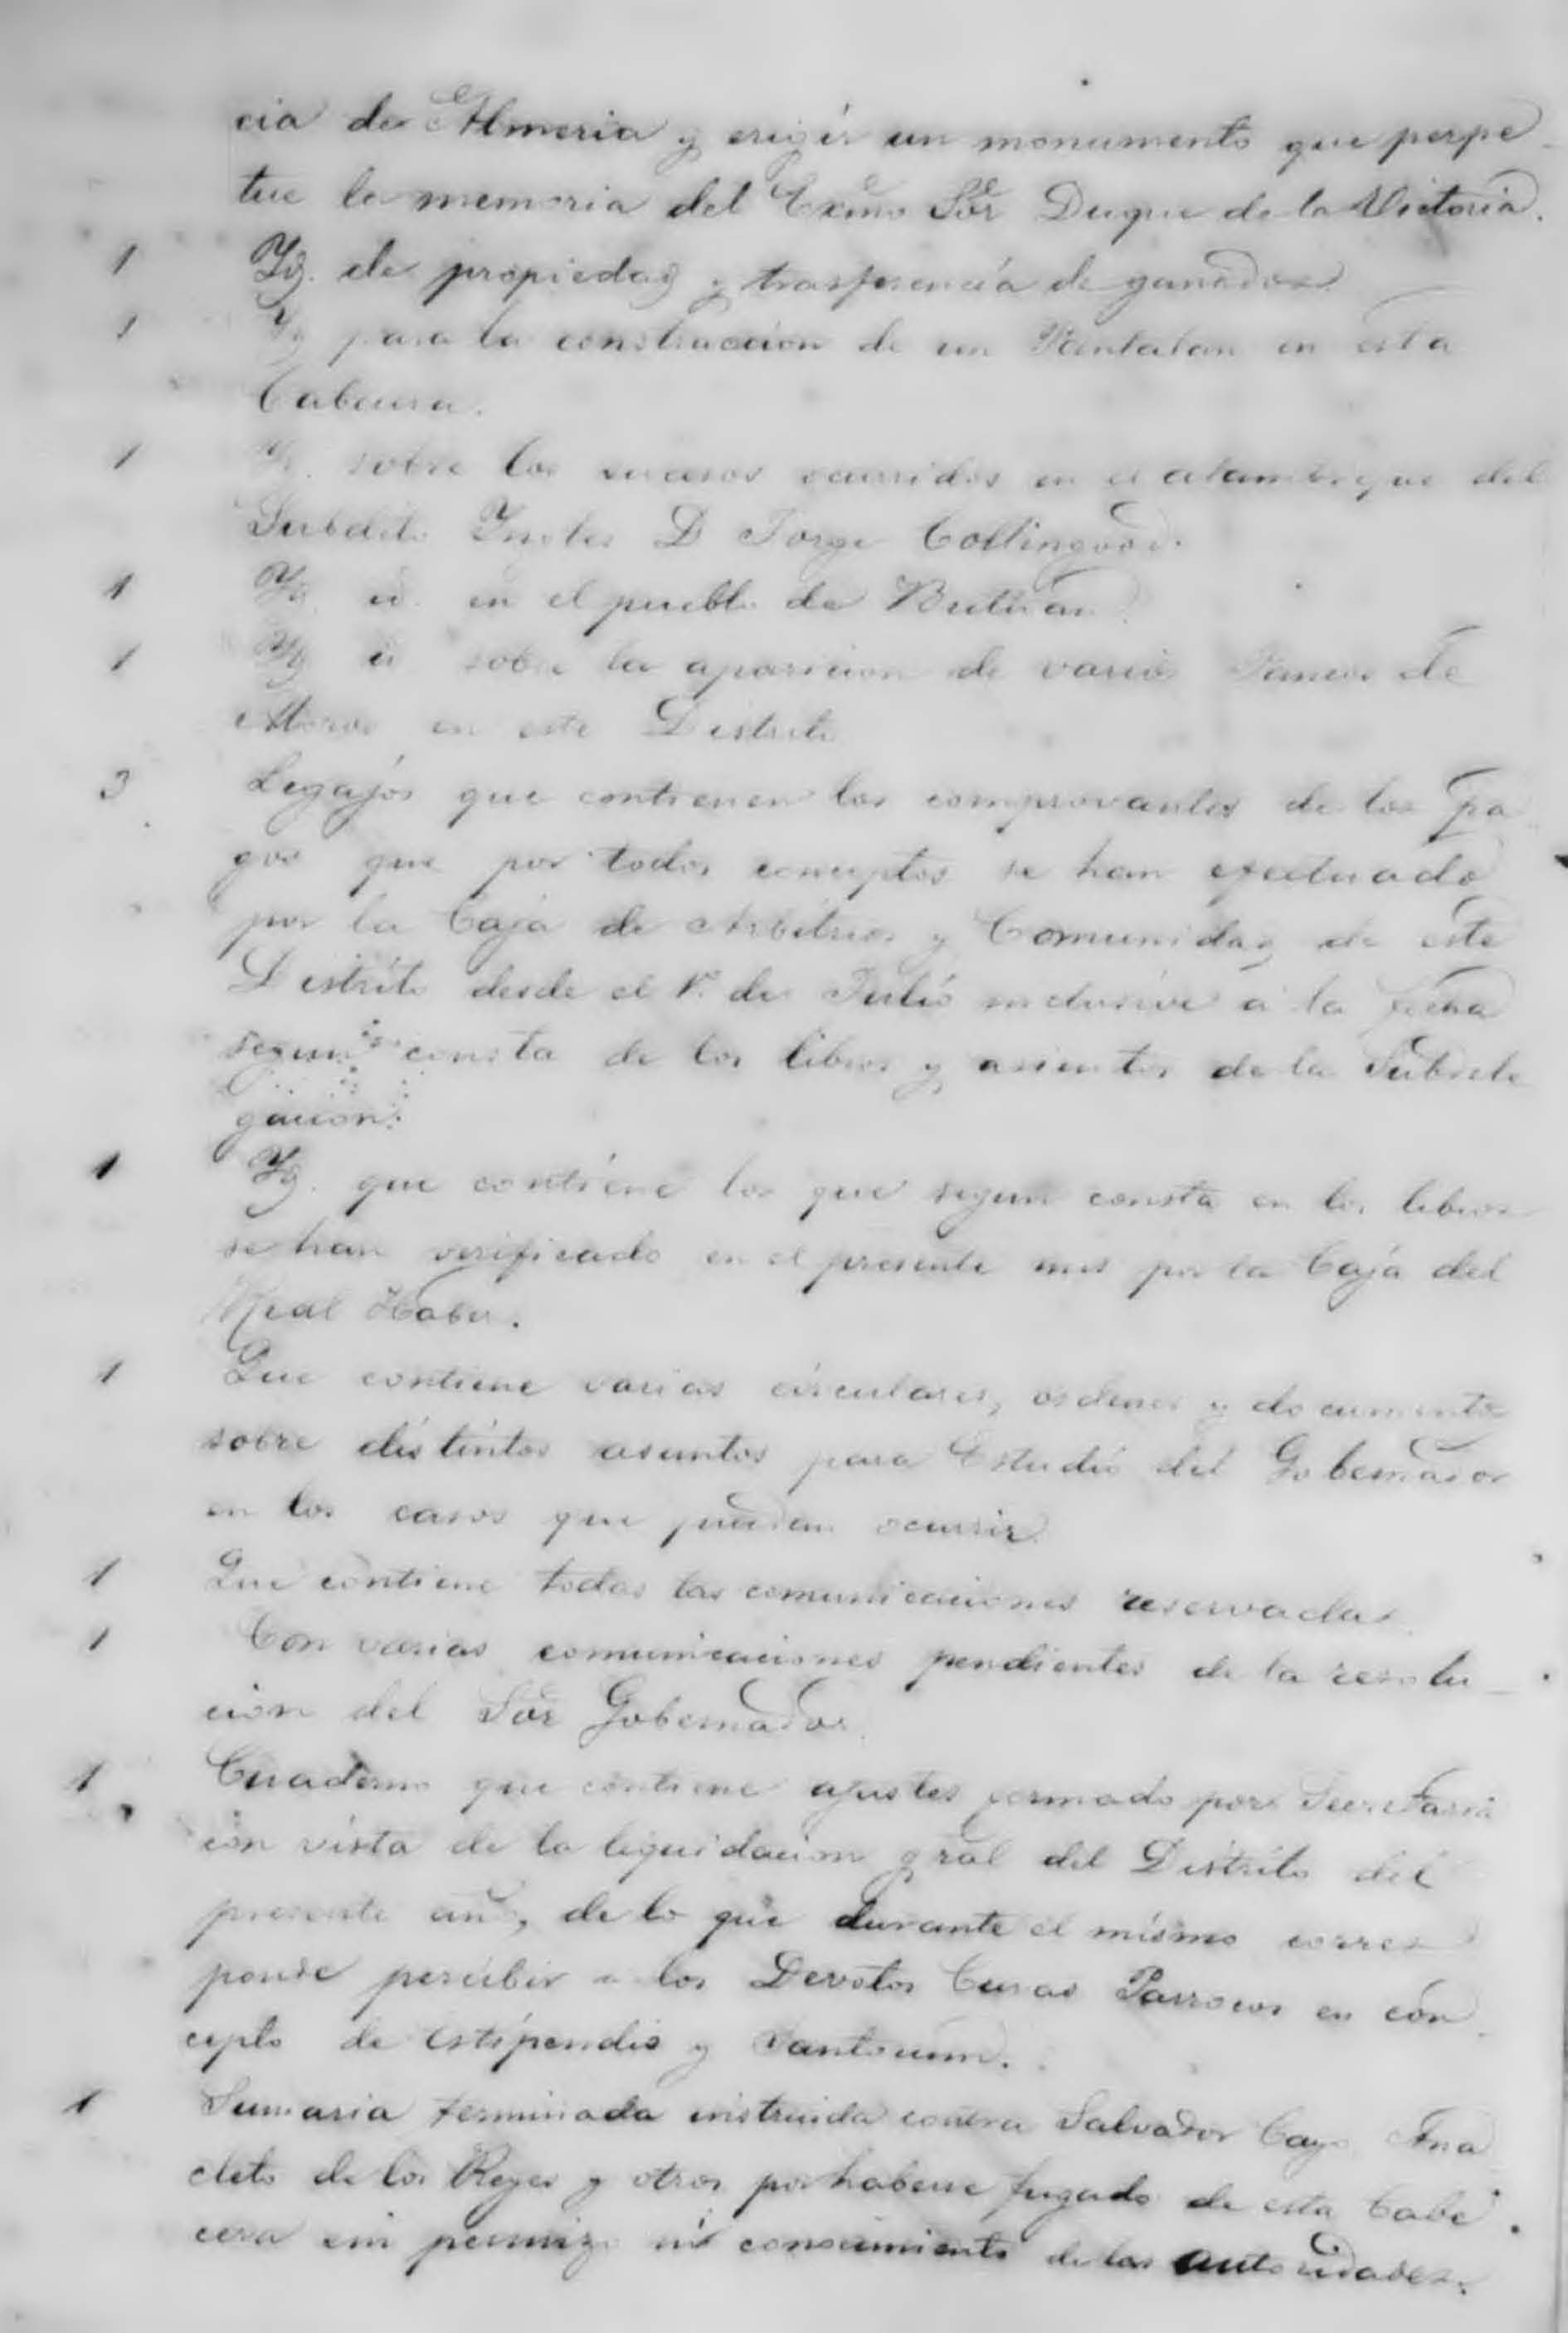 cia de Almeria y erigir un monumento que perpe-
tue la memoria del Exmo Sor Duque de la Victoria.
1 Yd. de propiedad y trasferencia de ganados.
1 Yd para la construccion de un Pantalan en esta
Cabecera.
1 Yd. sobre los sucesos ocurridos en el del
Subdito Yngles D Jorge Collingwood.
1 Yd id. en el pueblo de Butuan.
1 Yd id sobre la aparicion de varios Pancos de
Moros en este Distrito
3 Legajos que contienen los comprovantes de los pa
gos que por todos conceptos se han efectuado
por la Caja de Arbitrios y Comunidad de este
Distrito desde el 1º de Julio inclusive á la fecha
segun consta de los libros y asientos de la Subdele
gacion.
1 Yd. que contiene los que segun consta en los libros
se han verificado en el presente mes por la Caja del
Real Haber.
1 Que contiene varias circulares, ordenes y documentos
sobre distintos asuntos para Estudio del Gobernador
en los casos que puedan ocurrir.
1 Que contiene todas las comunicaciones reservadas.
1 Con varias comunicaciones pendientes de la resolu-
cion del Sor Gobernador.
1 Cuaderno que contiene ajustes formado por Secretaria
con vista de la liquidacion gral del Distrito del
presente año, de lo que durante el mismo corres
ponde percibir a los Devotos Curas Parrocos en con
cepto de estipendio y Santorum.
1 Sumaria terminada instruida contra Salvador Cayo Ana
cleto de los Reyes y otros por haberse fugado de esta Cabe
cera sin permizo ni conocimiento de las autoridades.